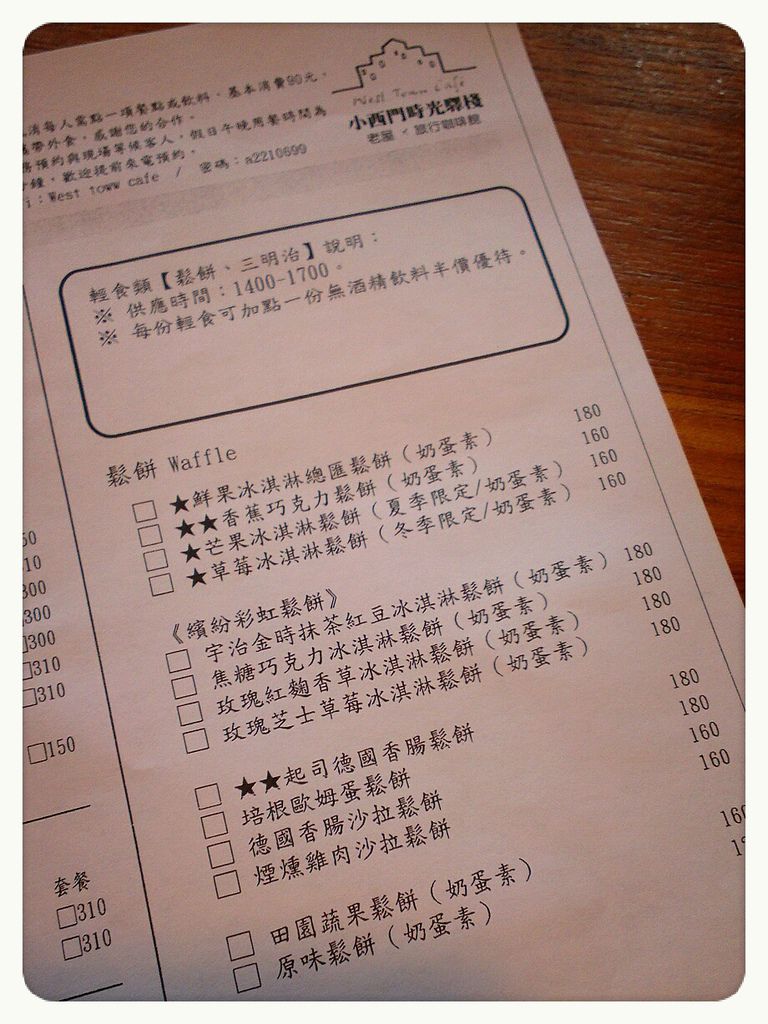 West Town Cafe
小西門時光驛棧
老屋 × 旅行咖啡館
消每人需點一項餐點或飲料，基本消費90元。
攜帶外食，感謝您的合作。
預約與現場等候客人，假日午晚用餐時間為
鐘，歡迎提前來電預約。
i：West toww cafe / 密碼：a2210699
輕食類【鬆餅、三明治】說明：
※ 供應時間：1400-1700。
※ 每份輕食可加點一份無酒精飲料半價優待。
鬆餅 Waffle
□ ★鮮果冰淇淋總匯鬆餅（奶蛋素） 180
□ ★★香蕉巧克力鬆餅（奶蛋素） 160
□ ★芒果冰淇淋鬆餅（夏季限定/奶蛋素） 160
□ ★草莓冰淇淋鬆餅（冬季限定/奶蛋素） 160
《繽紛彩虹鬆餅》
□ 宇治金時抹茶紅豆冰淇淋鬆餅（奶蛋素） 180
□ 焦糖巧克力冰淇淋鬆餅（奶蛋素） 180
□ 玫瑰紅麴香草冰淇淋鬆餅（奶蛋素） 180
□ 玫瑰芝士草莓冰淇淋鬆餅（奶蛋素） 180
□ ★★起司德國香腸鬆餅 180
□ 培根歐姆蛋鬆餅 180
□ 德國香腸沙拉鬆餅 160
□ 煙燻雞肉沙拉鬆餅 160
□ 田園蔬果鬆餅（奶蛋素） 160
□ 原味鬆餅（奶蛋素）
50
10
300
300
300
□310
□310
□150
套餐
□310
□310